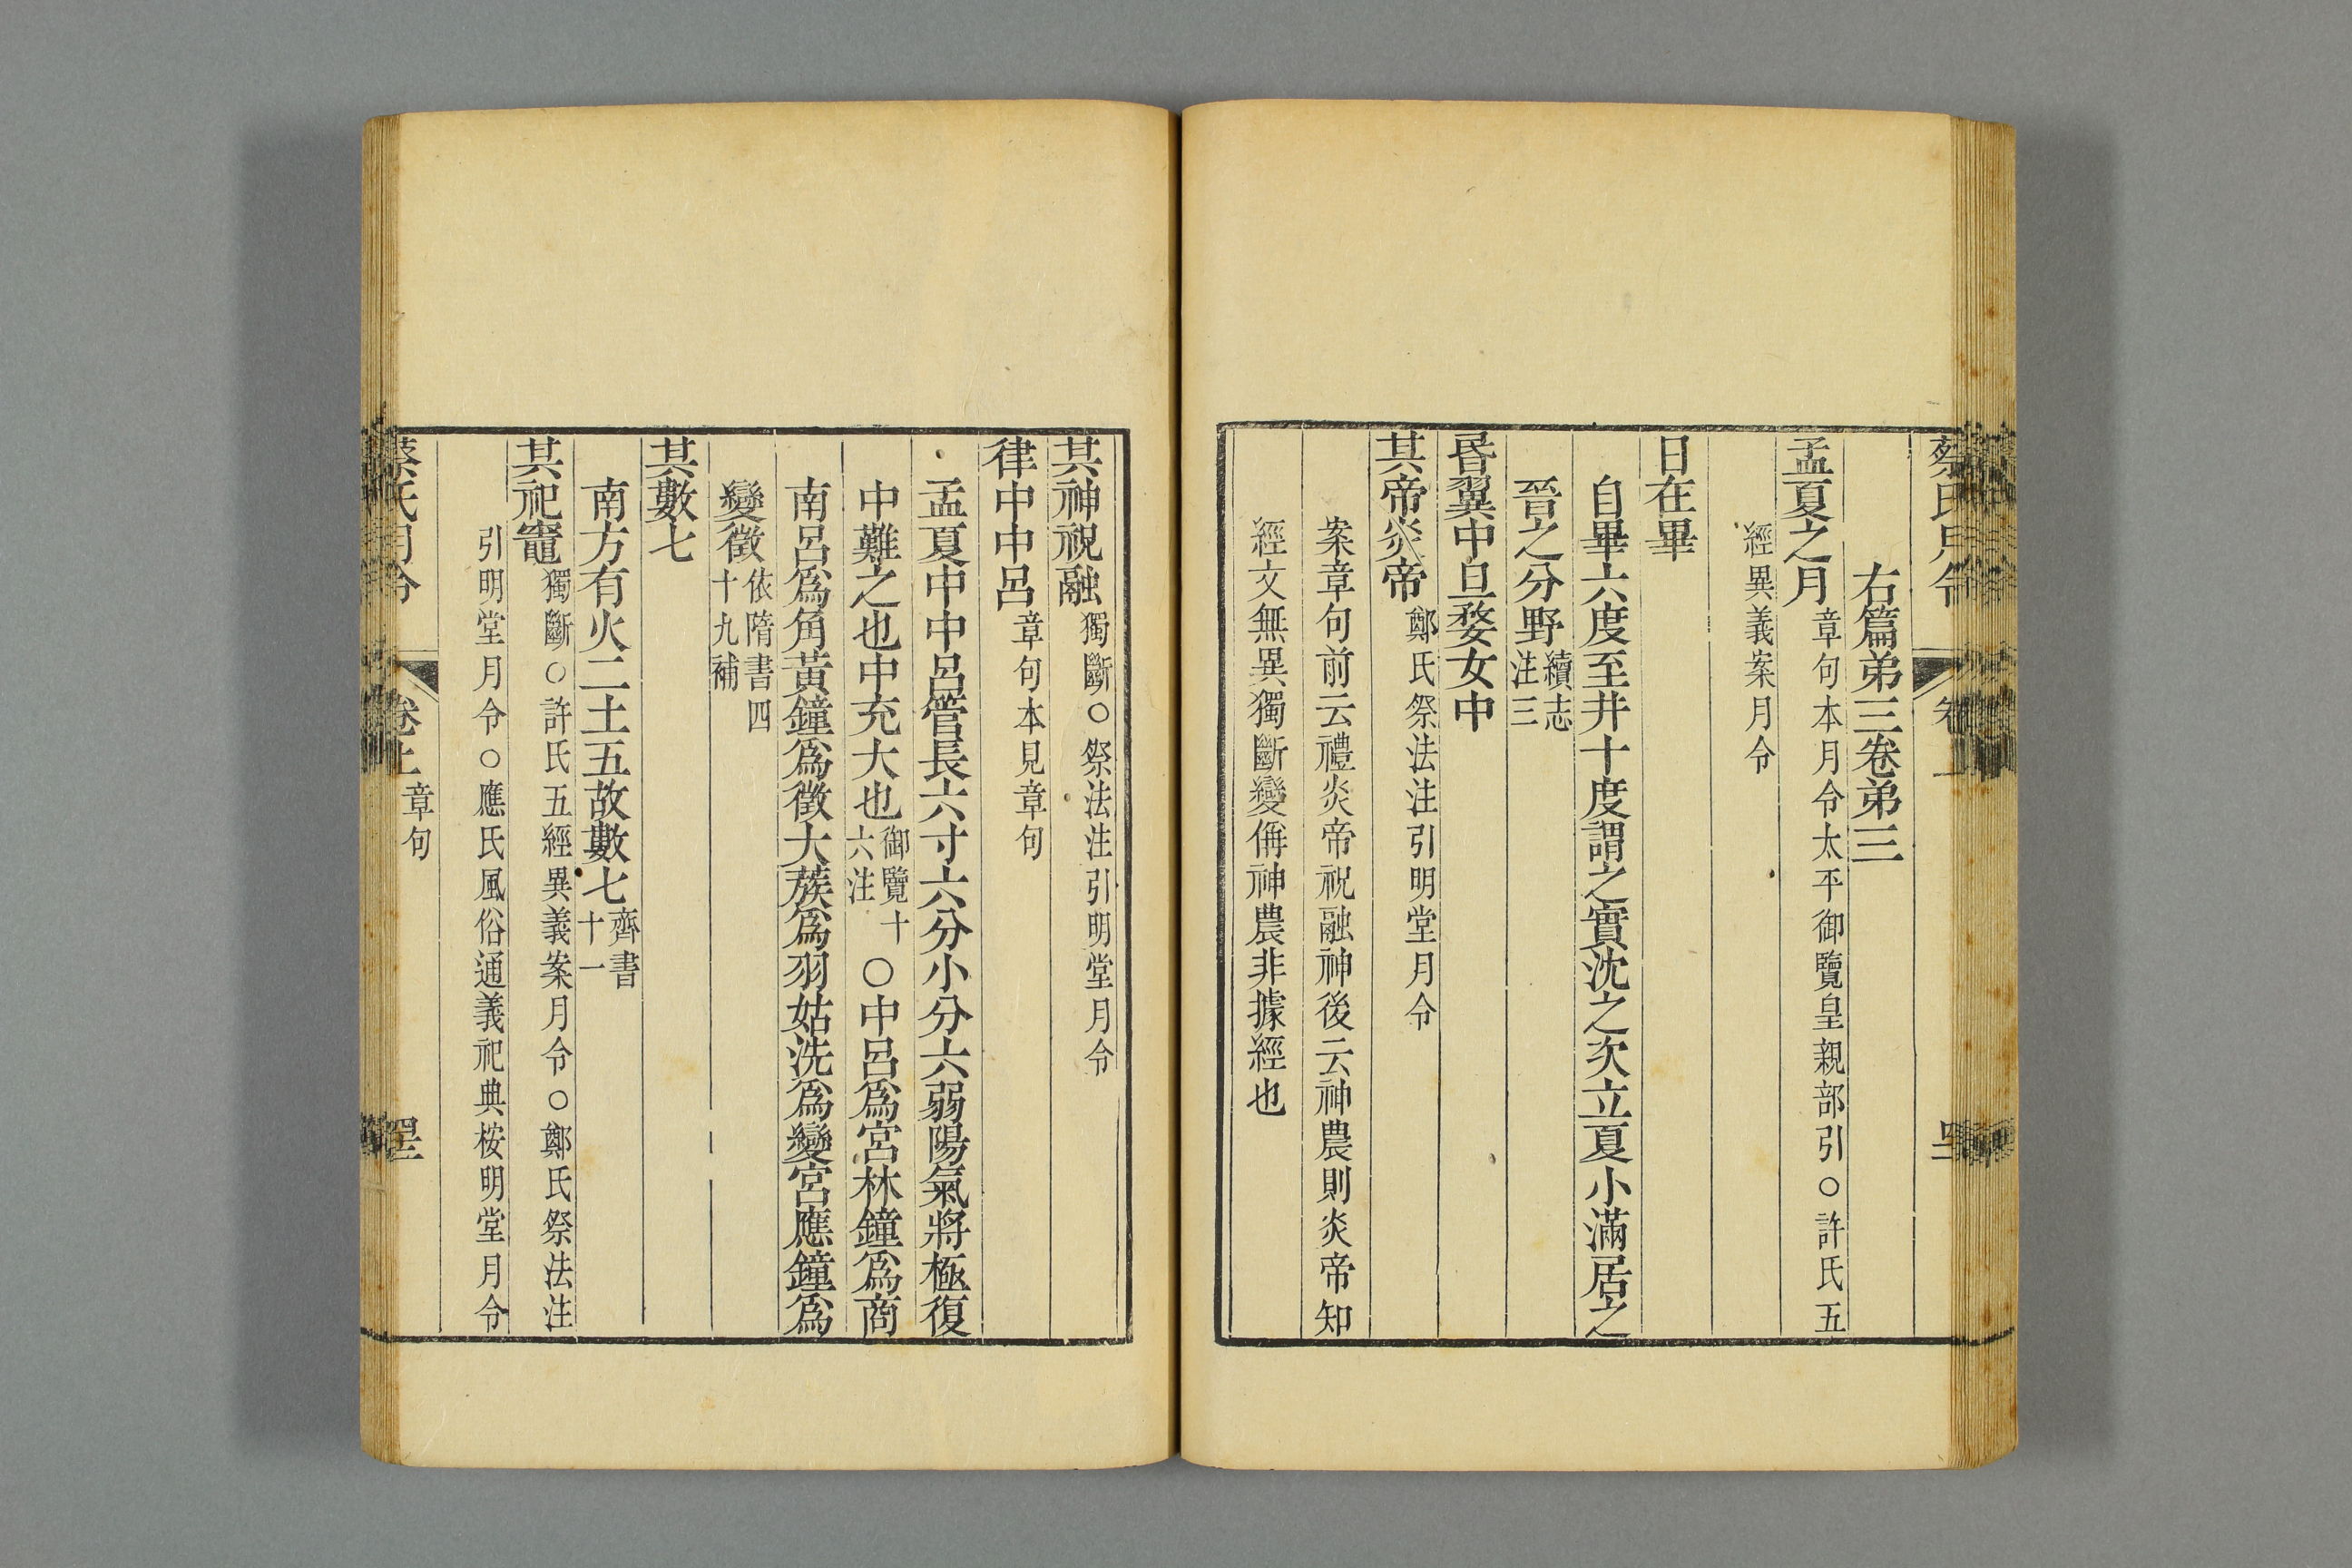 蔡氏月令
卷
右篇弟三卷弟三
孟夏之月章句本月令太平御覽皇親部引○許氏五
經異義案月令
日在畢
自畢六度至井十度謂之實沈之次立夏小滿居之
晉之分野續志
注三
昬翼中旦婺女中
其帝炎帝鄭氏祭法注引明堂月令
案章句前云禮炎帝祝融神後云神農則炎帝知
經文無異獨斷變偁神農非據經也
其神祝融獨斷○祭法注引明堂月令
律中中呂章句本見章句
孟夏中中呂管長六寸六分小分六弱陽氣將極復
中難之也中充大也御覽十
六注○中呂為宮林鐘為商
南呂為角黃鐘為徵大蔟為羽姑洗為變宮應鐘為
變徵依隋書四
十九補
其數七
南方有火二土五故數七齊書
十一
其祀竈獨斷○許氏五經異義案月令○鄭氏祭法注
引明堂月令○應氏風俗通義祀典桉明堂月令
蔡氏月令
卷上章句